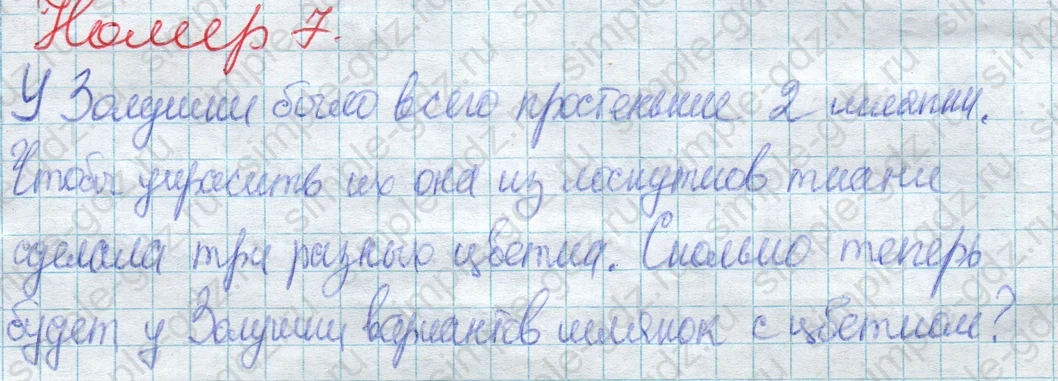 Номер 7.
У Золушки было всего простенькие 2 шляпки.
Чтобы украсить их она из лоскутков ткани
сделала три разных цветка. Сколько теперь
будет у Золушки вариантов шляпок с цветком?